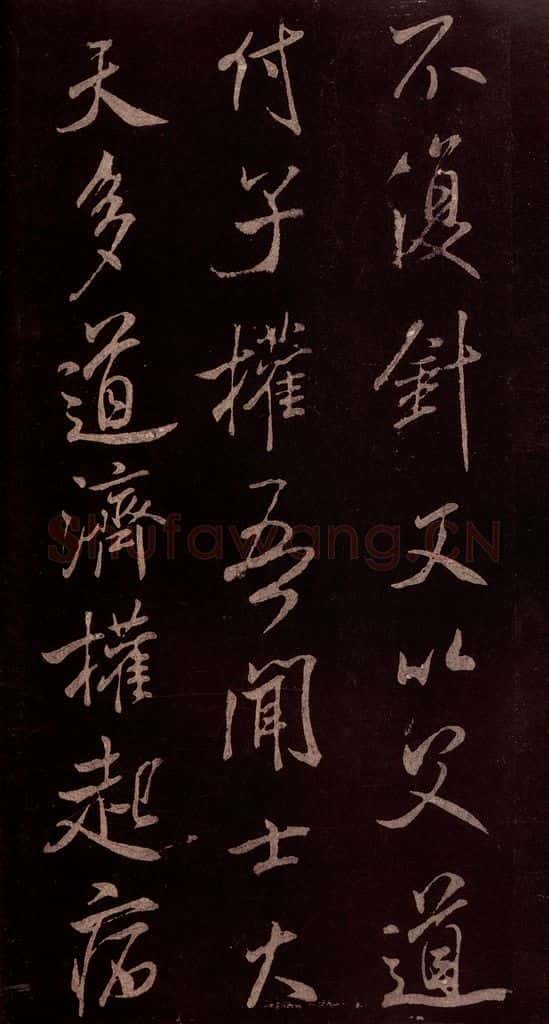 不復針又以父道
付子權吾聞士大
天多道濟權起病
Shufawang.CN